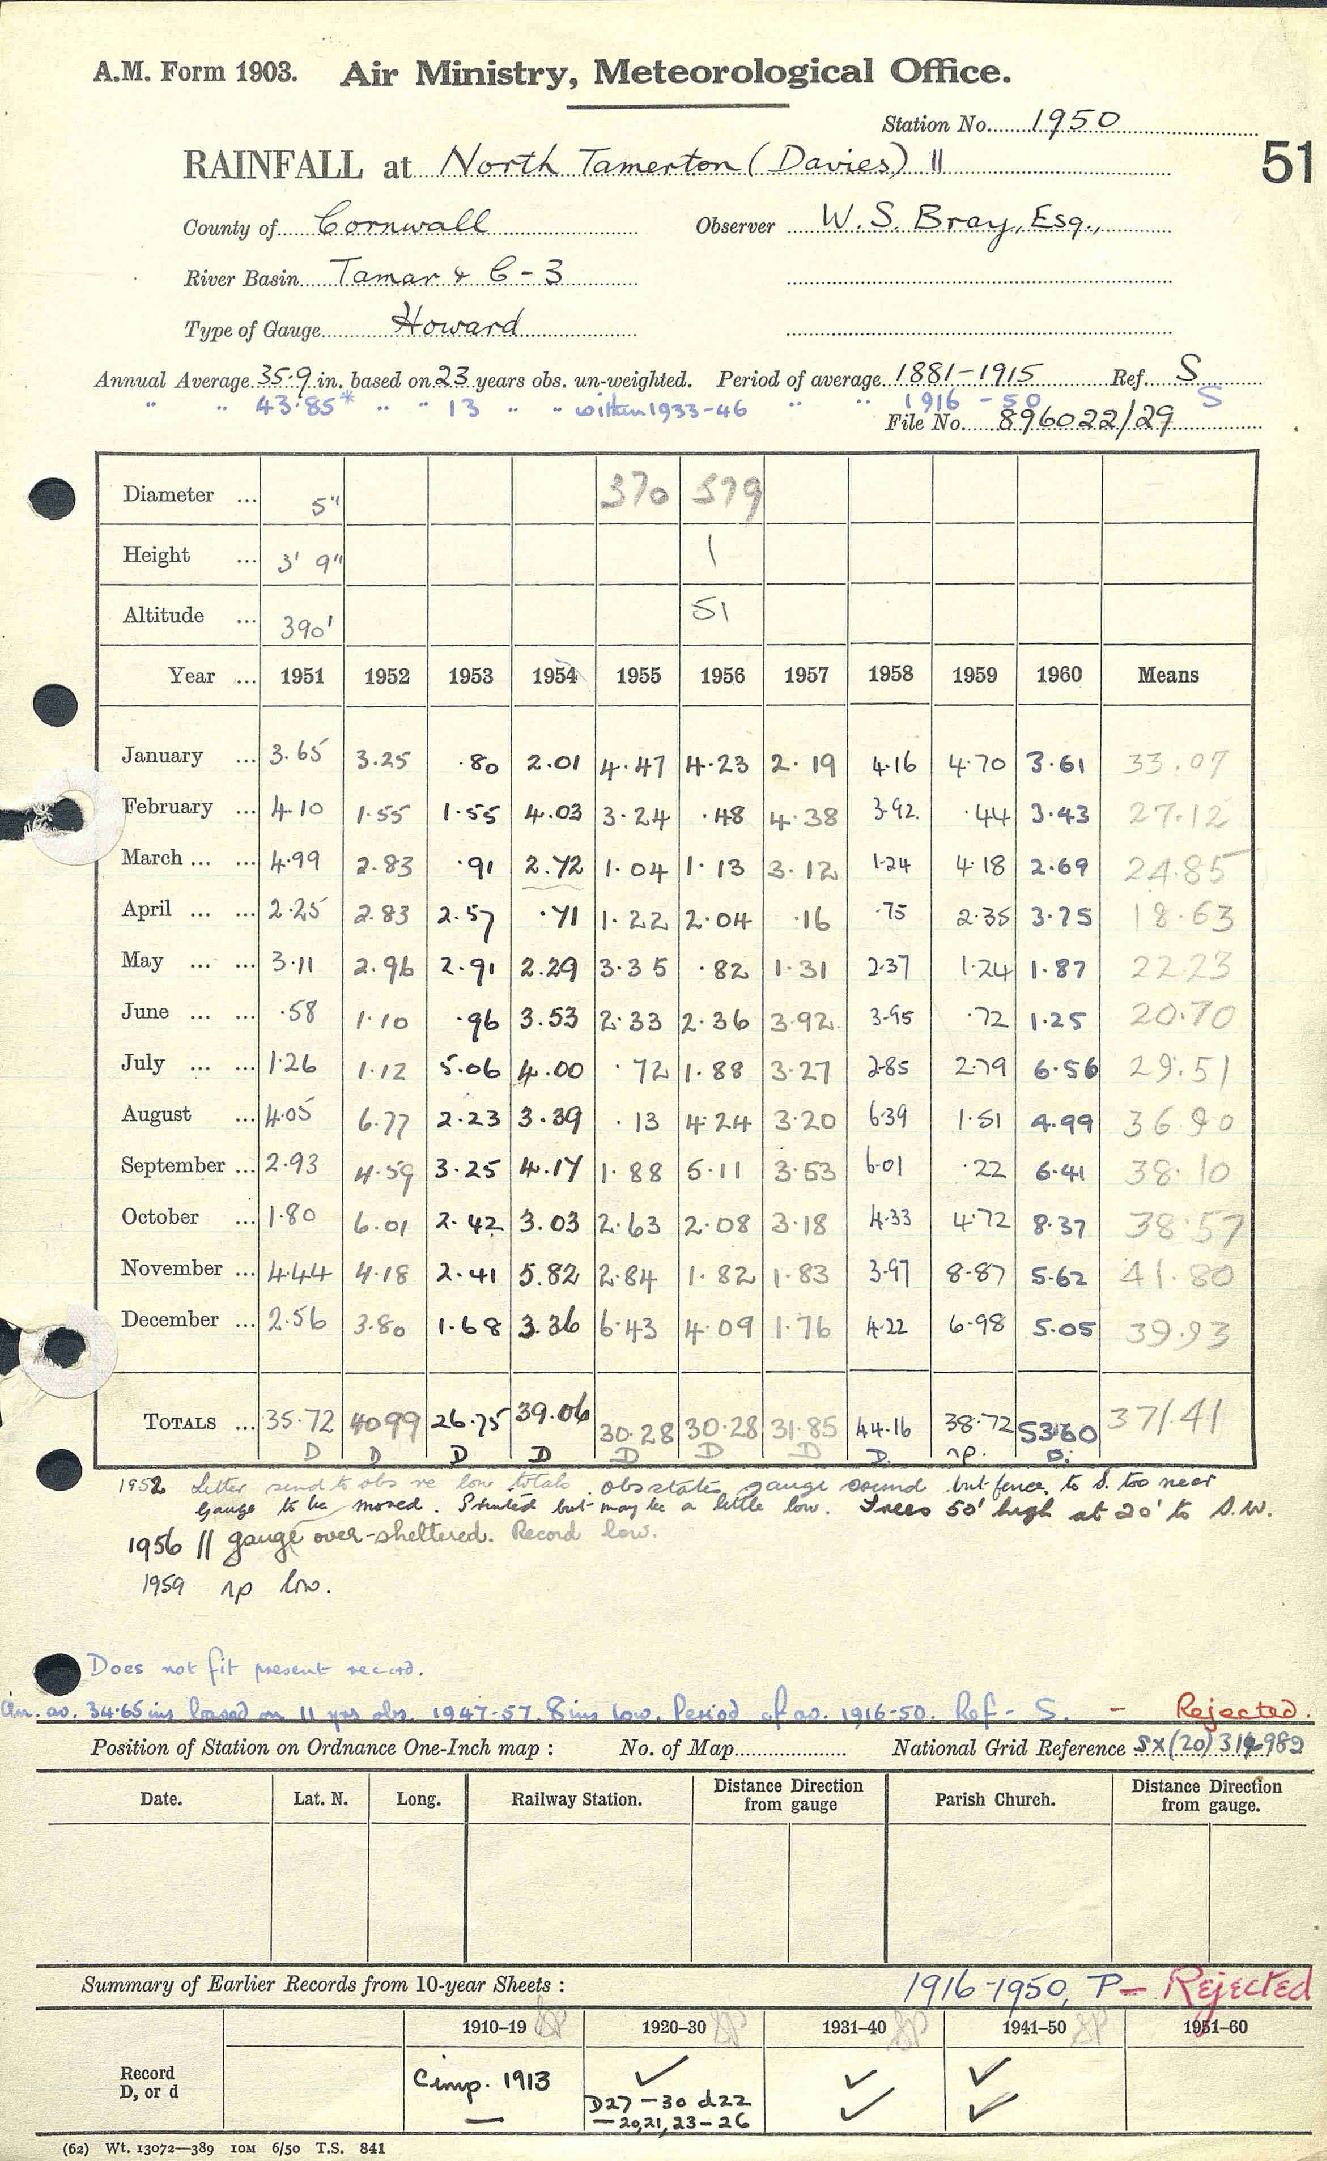 A.M. Form 1903. Air Ministry, Meteorological Office.
Station No. 1950
51
RAINFALL at North Tamerton (Davies) ||
County of Cornwall Observer W. S. Bray, Esq.,
River Basin Tamar & C-3
Type of Gauge Howard
Annual Average 35.9 in. based on 23 years obs. un-weighted. Period of average 1881-1915 Ref. S
" " 43.85* " " 13 " " within 1933-46 " " 1916-50 S
File No. 896022/29
Diameter ... 5" 370 579
Height ... 3' 9" 1
Altitude ... 390' 51
Year ... 1951 1952 1953 1954 1955 1956 1957 1958 1959 1960 Means
January ... 3.65 3.25 .80 2.01 4.47 4.23 2.19 4.16 4.70 3.61 33.07
February ... 4.10 1.55 1.55 4.03 3.24 .48 4.38 3.92 .44 3.43 27.12
March ... ... 4.99 2.83 .91 2.72 1.04 1.13 3.12 1.24 4.18 2.69 24.85
April ... ... 2.25 2.83 2.57 .71 1.22 2.04 .16 .75 2.35 3.75 18.63
May ... ... 3.11 2.96 2.91 2.29 3.35 .82 1.31 2.37 1.24 1.87 22.23
June ... ... .58 1.10 .96 3.53 2.33 2.36 3.92 3.95 .72 1.25 20.70
July ... ... 1.26 1.12 5.06 4.00 .72 1.88 3.27 2.85 2.79 6.56 29.51
August ... 4.05 6.77 2.23 3.39 .13 4.24 3.20 6.39 1.51 4.99 36.90
September ... 2.93 4.59 3.25 4.17 1.88 5.11 3.53 6.01 .22 6.41 38.10
October ... 1.80 6.01 2.42 3.03 2.63 2.08 3.18 4.33 4.72 8.37 38.57
November ... 4.44 4.18 2.41 5.82 2.84 1.82 1.83 3.97 8.87 5.62 41.80
December ... 2.56 3.80 1.68 3.36 6.43 4.09 1.76 4.22 6.98 5.05 39.93
TOTALS ... 35.72 40.99 26.75 39.06 30.28 30.28 31.85 44.16 38.72 53.60 371.41
D D D D D D D D np. D.
1952 Letter send to obs re low totals. obs states gauge sound but fence to S. too near
Gauge to be moved. Printed but may be a little low. Trees 50' high at 20' to S.W.
1956 || gauge over-sheltered. Record low.
1959 np low.
Does not fit present record.
An. av. 34.65 ins based on 11 yrs obs. 1947-57. 8 ins low. Period of av. 1916-50. Ref - S. - Rejected.
Position of Station on Ordnance One-Inch map : No. of Map National Grid Reference SX(20) 982
Date. Lat. N. Long. Railway Station. Distance Direction from gauge Parish Church. Distance Direction from gauge.
Summary of Earlier Records from 10-year Sheets : 1916-1950, P- Rejected
1910-19 1920-30 1931-40 1941-50 1951-60
Record D, or d
Cimp. 1913 ✓ ✓ ✓
— D27-30 d22 ✓ ✓
-20,21,23-26
(62) Wt. 13072—389 10M 6/50 T.S. 841